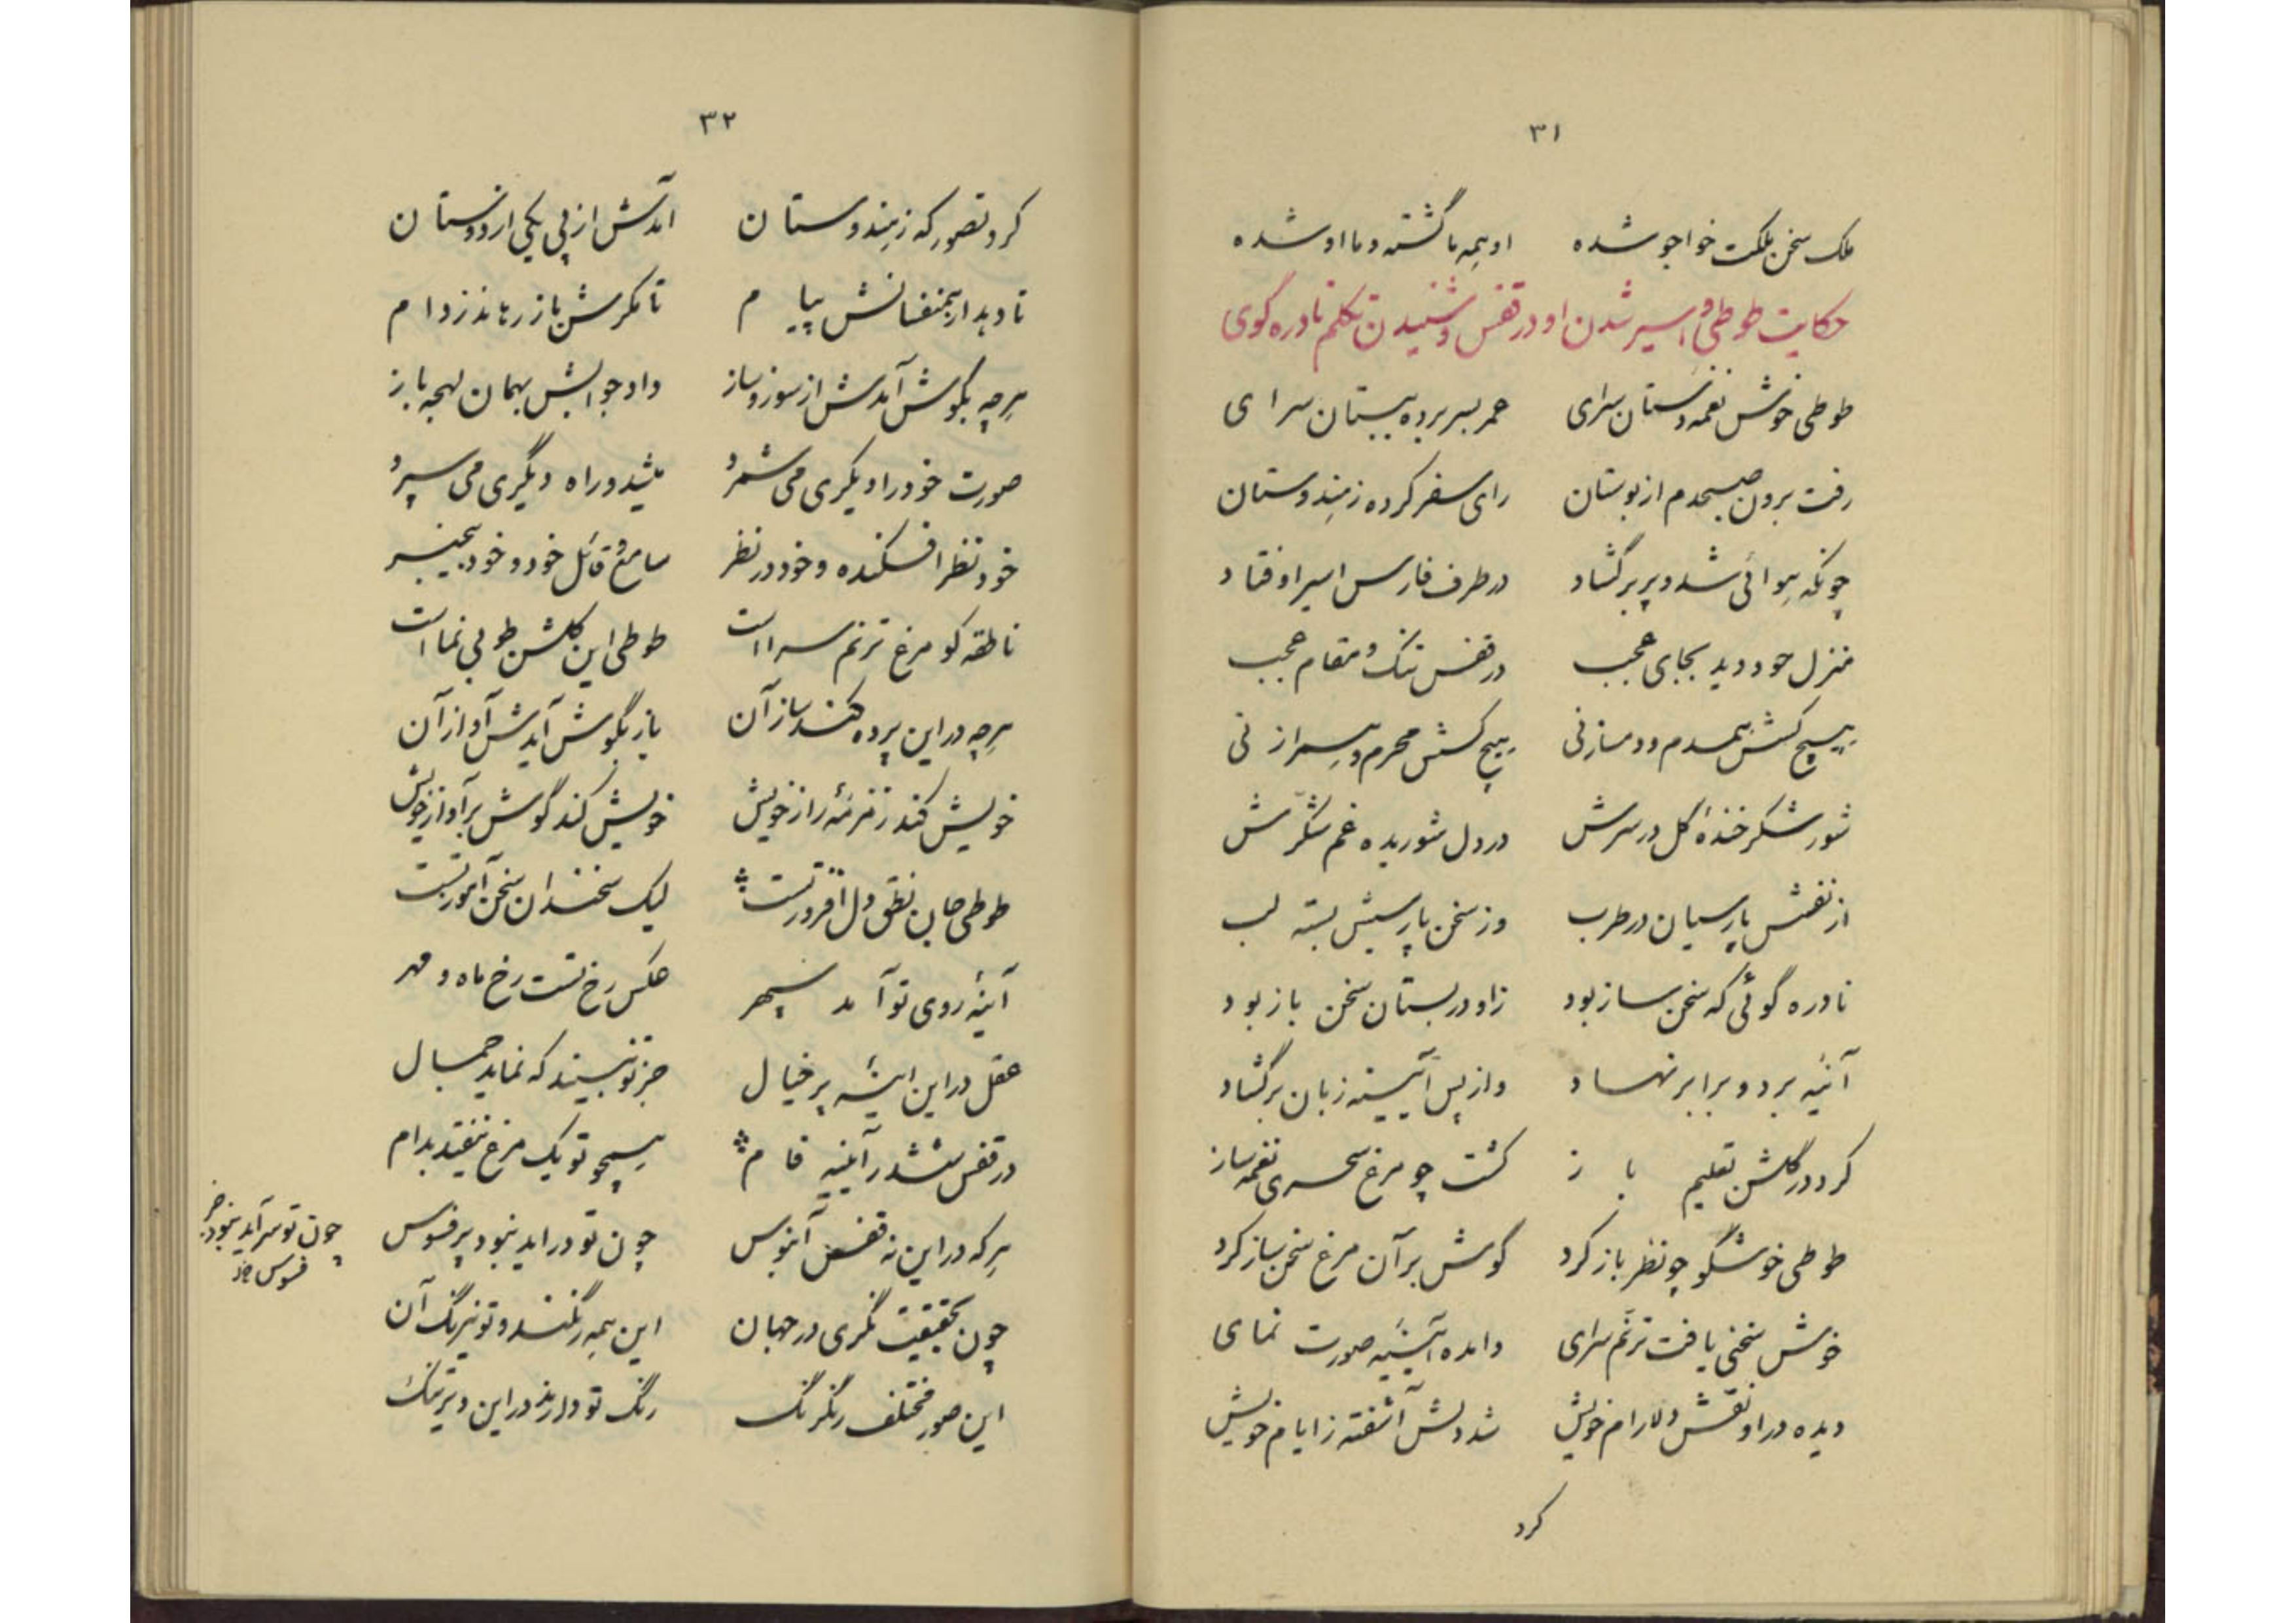 ۳۱
ملک سخن ملکت خواجو شده اوهمه ما گشته و ما او شده
حکایت طوطی و اسیر شدن او در قفس و شنیدن تکلم نادره گوی
طوطی خوش نغمه دستان سرای عمر بسر برده ببستان سرای
رفت برون صبحدم از بوستان رای سفر کرده ز هندوستان
چونکه هوائی شد و پر برگشاد در طرف فارس اسیر اوفتاد
منزل خود دید بجای عجب در قفس تنک و مقام عجب
هیچ کسش همدم و دمساز نی هیچ کسش محرم و همراز نی
شور شکر خندهٔ گل در سرش در دل شوریده غم شکّرش
از نفسش پارسیان در طرب وز سخن پارسیش بسته لب
نادره گوئی که سخن ساز بود زو در بستان سخن باز بود
آئینه برد و برابر نهاد و از پس آیینه زبان برگشاد
کرد در گلشن تعلیم باز گشت چو مرغ سحری نغمه ساز
طوطی خوشگو چو نظر باز کرد گوش بر آن مرغ سخن ساز کرد
خوش سخنی یافت ترنّم سرای وامده آئینه صورت نمای
دیده در او نقش دلارام خویش شد دلش آشفته ز ایام خویش
کرد
۳۲
کرد تصور که ز هندوستان امدش از پی یکی از دوستان
تا دهد از همنفسانش پیام تا مگرش باز رهاند ز دام
هرچه بگوش آمدش از سوز و ساز داد جوابش بهمان لهجه باز
صورت خود را دیگری می شمرد میشد و راه دیگری می سپرد
خود نظر افکنده و خود در نظر سامع و قائل خود و خود بیخبر
ناطقه کو مرغ ترنم سرا است طوطی این گلشن طوبی نما است
هرچه در این پرده کند ساز آن باز بگوش آیدش آواز آن
خویش کند زمزمهٔ راز خویش خویش کند گوش بر آواز خویش
طوطی جان نطق دل افروز تست لیک سخندان سخن آموز تست
آینهٔ روی تو آمد سپهر عکس رخ تست رخ ماه و مهر
عقل در این ایینه پر خیال جز تو نبیند که نماید جمال
در قفس ششدر آیینه فام هیچو تو یک مرغ نیفتد بدام
هرکه در این نه قفس آبنوس چون تو دراید نبود پر فسوس
چون تو سرآید نبود جز
فسوس
چون بحقیقت نگری در جهان این همه رنگند و تو نیرنگ آن
این صور مختلف رنگرنگ رنگ تو دارند در این دیر تنگ